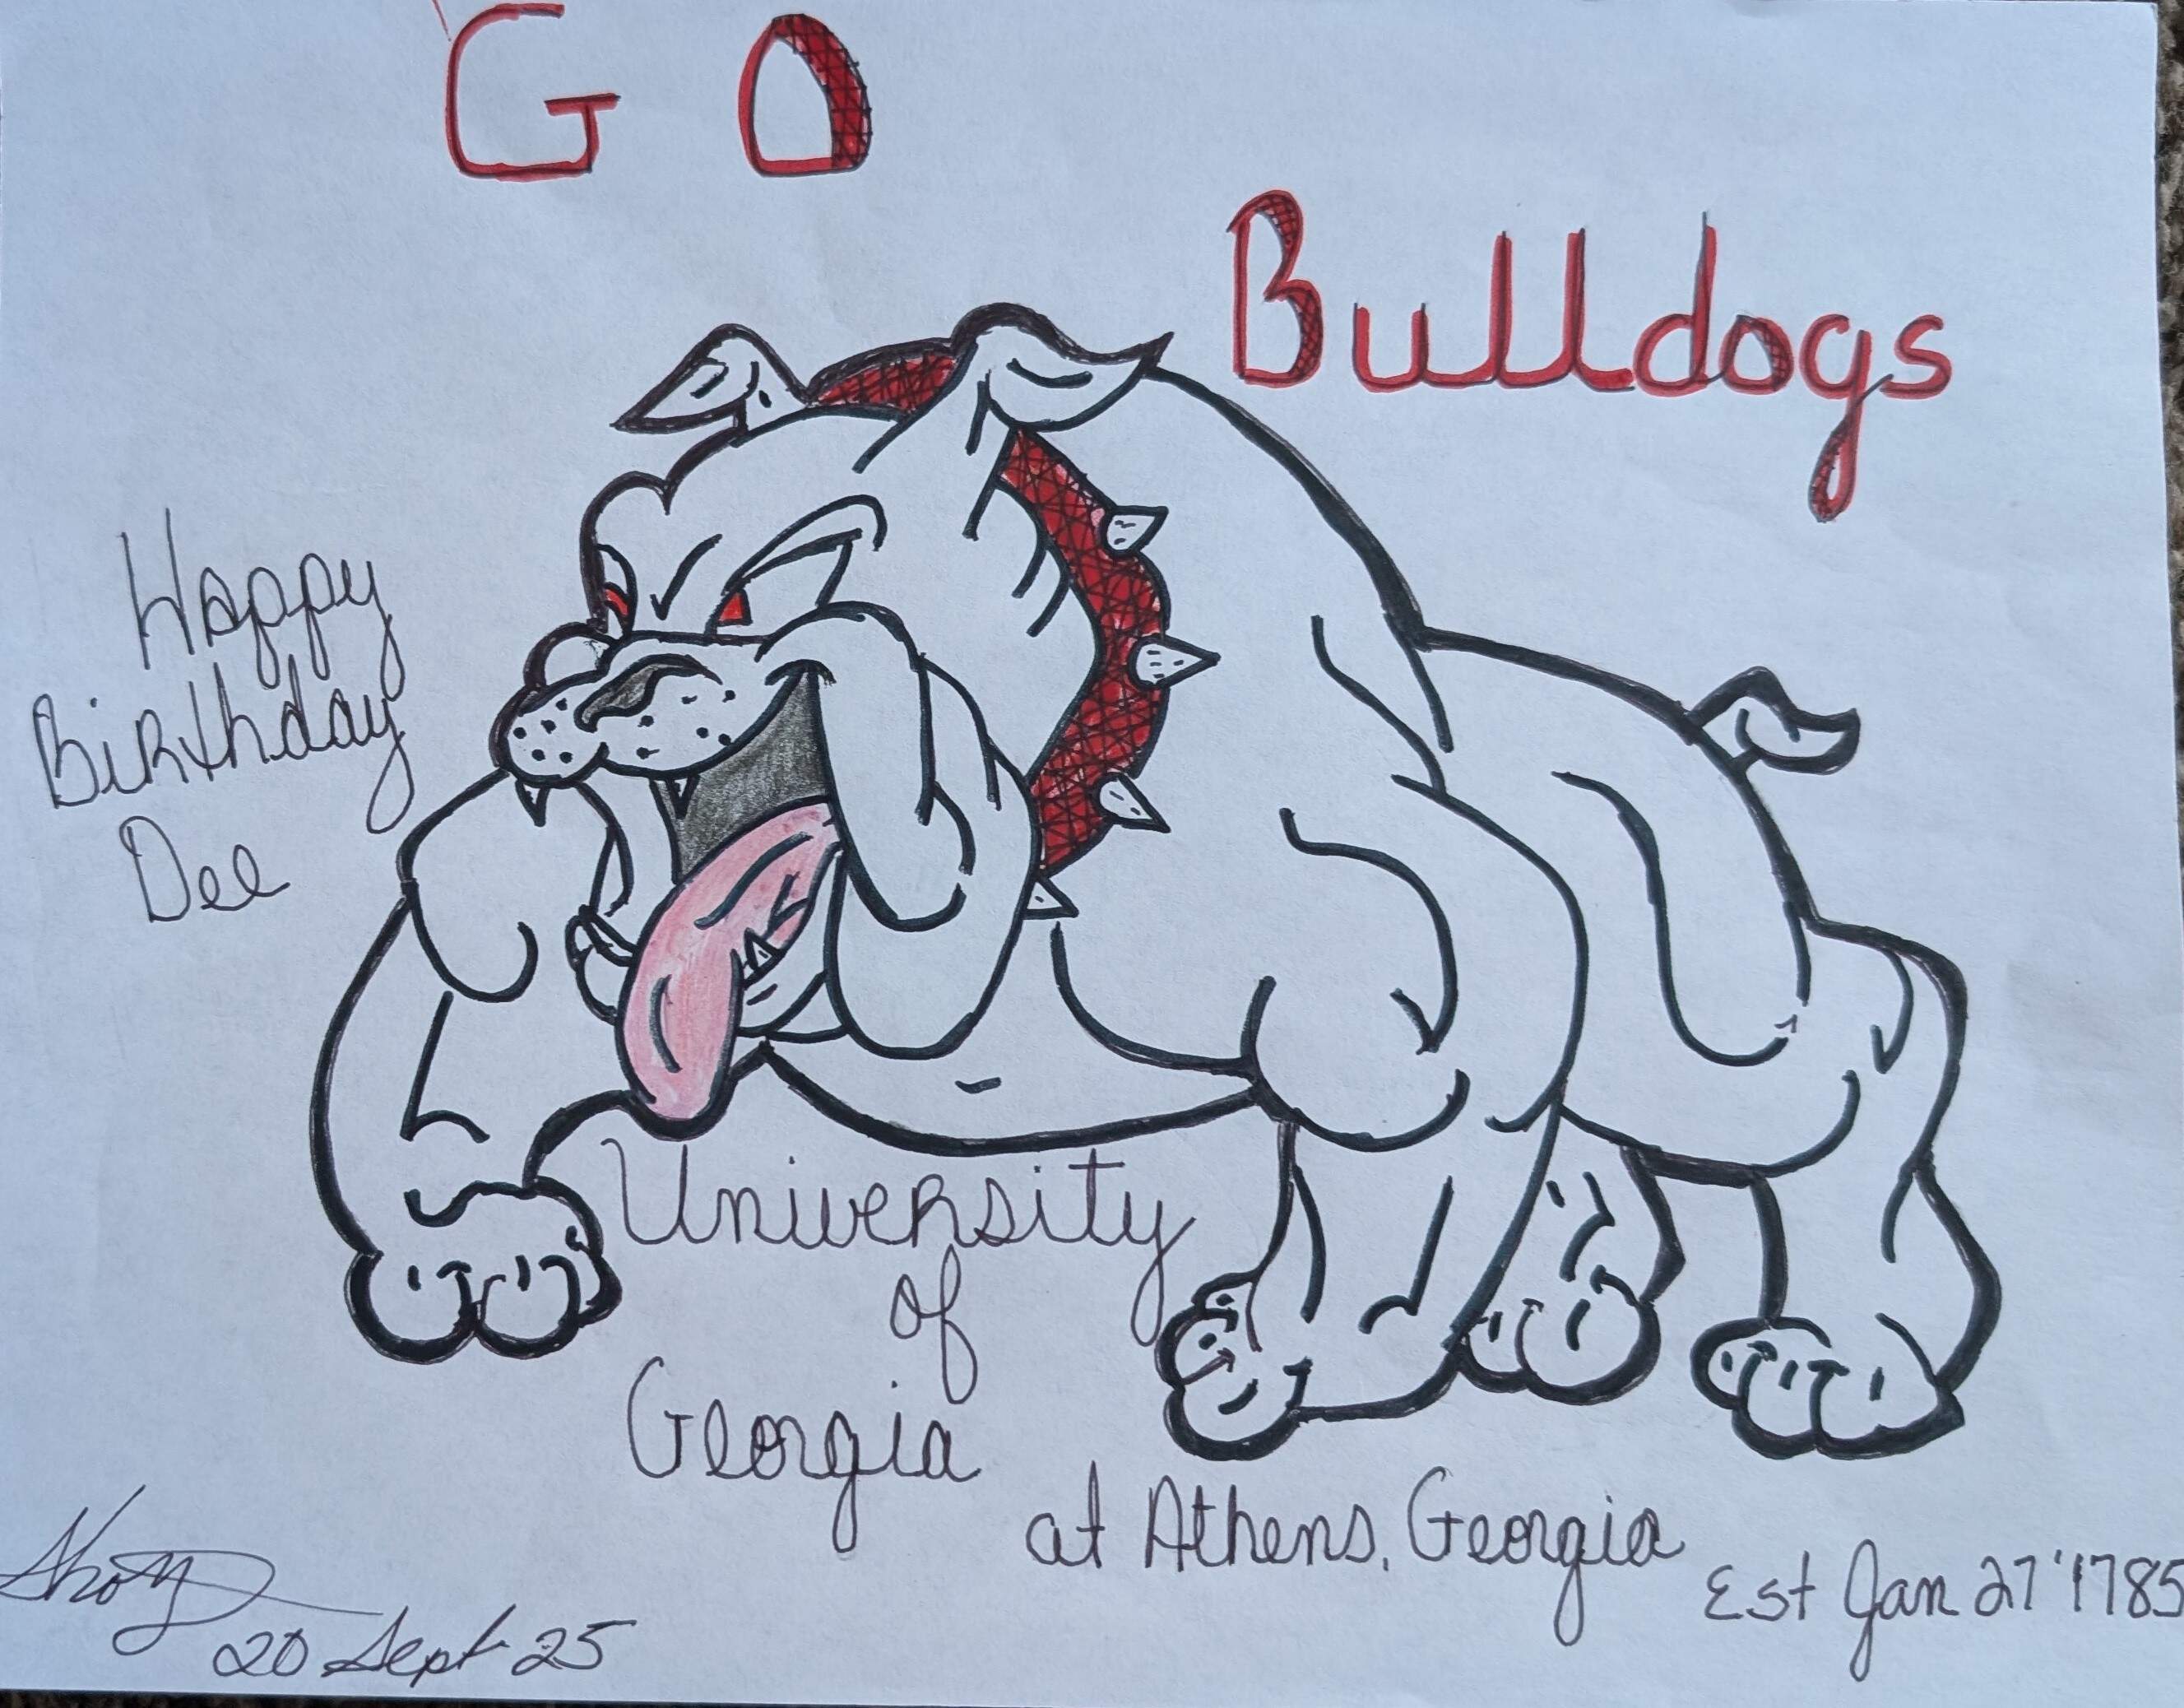 GO
Bulldogs
Happy
Birthday
Dee
University
of
Georgia
at Athens, Georgia
Est Jan 27 '1785
20 Sept 25